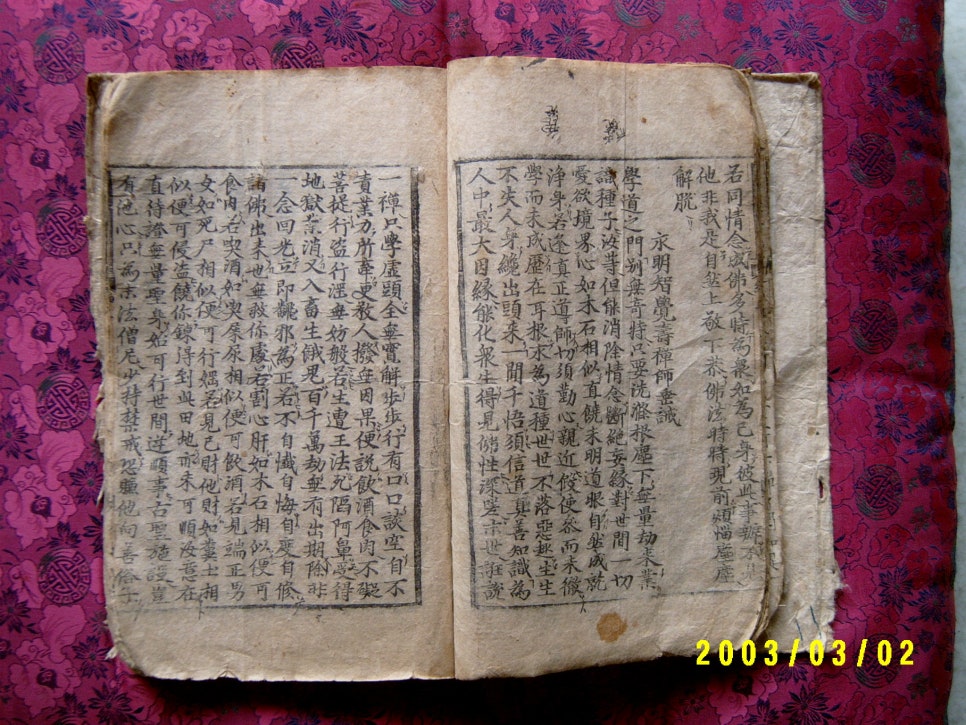 若同情念成佛多時為衆如為己身彼此事辦不
他非我是自然上敬下恭佛法時時現前煩惱塵塵
解脫
永明智覺壽禪師垂誡
學道之門別無奇特只要洗滌根塵下無量劫來業
識種子汝等但能消除情念斷絕妄緣對世間一切
愛欲境界心如木石相似直饒未明道眼自然成就
淨身若逢真正導師切須勤心親近假使參而未徹
學而未成歷在耳根永為道種世世不落惡趣生生
不失人身纔出頭來一聞千悟須信道真善知識為
人中最大因緣能化衆生得見佛性深嗟末世誑說
一禪只學虛頭全無實解步步行有口口談空自不
責業力所牽更教人撥無因果便說飲酒食肉不礙
菩提行盜行淫無妨般若生遭王法死陷阿鼻受得
地獄業消又入畜生餓鬼百千萬劫無有出期除非
一念回光立即翻邪為正若不自懺自悔自度自修
諸佛出來也無救你處若割心肝如木石相似便可
食肉若喫酒如喫屎尿相似便可飲酒若見端正男
女如死尸相似便可行婬若見己財他財如糞土相
似便可侵盜饒你鍊得到此田地亦未可順汝意在
直待證無量聖身始可行世間逆順事古聖施設豈
有他心只為末法僧尼少持禁戒恐賺他向善俗士
2003/03/02